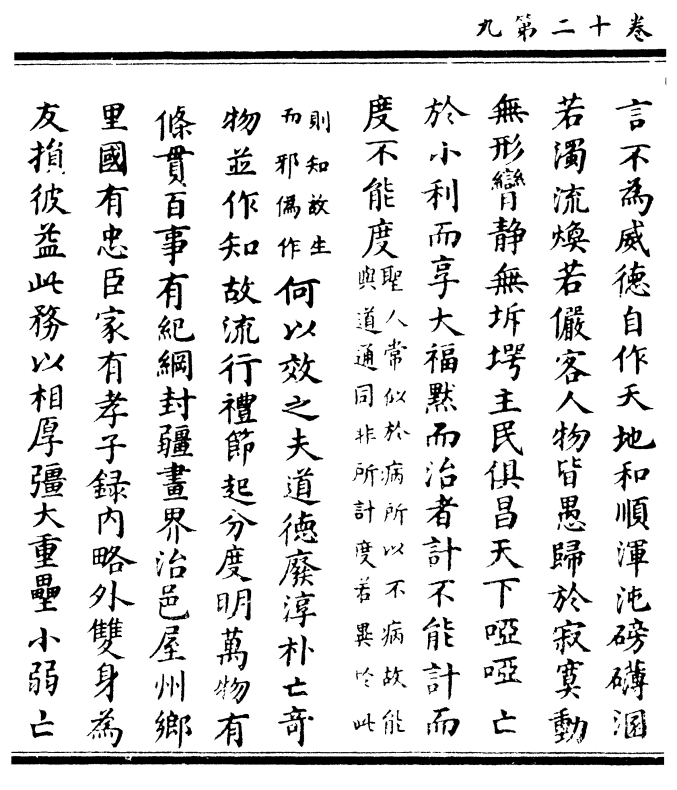 卷十二第九
言不為威德自作天地和順渾沌磅礴溷
若濁流煥若儼客人物皆愚歸於寂寞動
無形臠静無坼堮主民俱昌天下啞啞亡
於小利而享大福黙而治者計不能計而
度不能度聖人常似於病所以不病故能
與道通同非所計度若異於此
則知故生
而邪偽作何以效之夫道德廢淳朴亡奇
物並作知故流行禮節起分度明萬物有
條貫百事有紀綱封疆畫界治邑屋州鄉
里國有忠臣家有孝子録內略外雙身為
友損彼益此務以相厚彊大重壘小弱亡